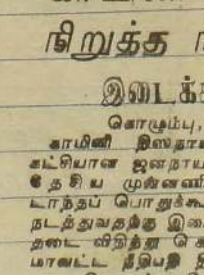 நிறுத்த
இடைக்
கொழும்பு,
காமினி திஸாநாய
கட்சியான ஜனநாய
தேசிய முன்னணி
டாந்தப் பொதுக்கூ
நடத்துவதற்கு இடை
தடை விதித்து கொ
மாவட்ட நீதிபதி